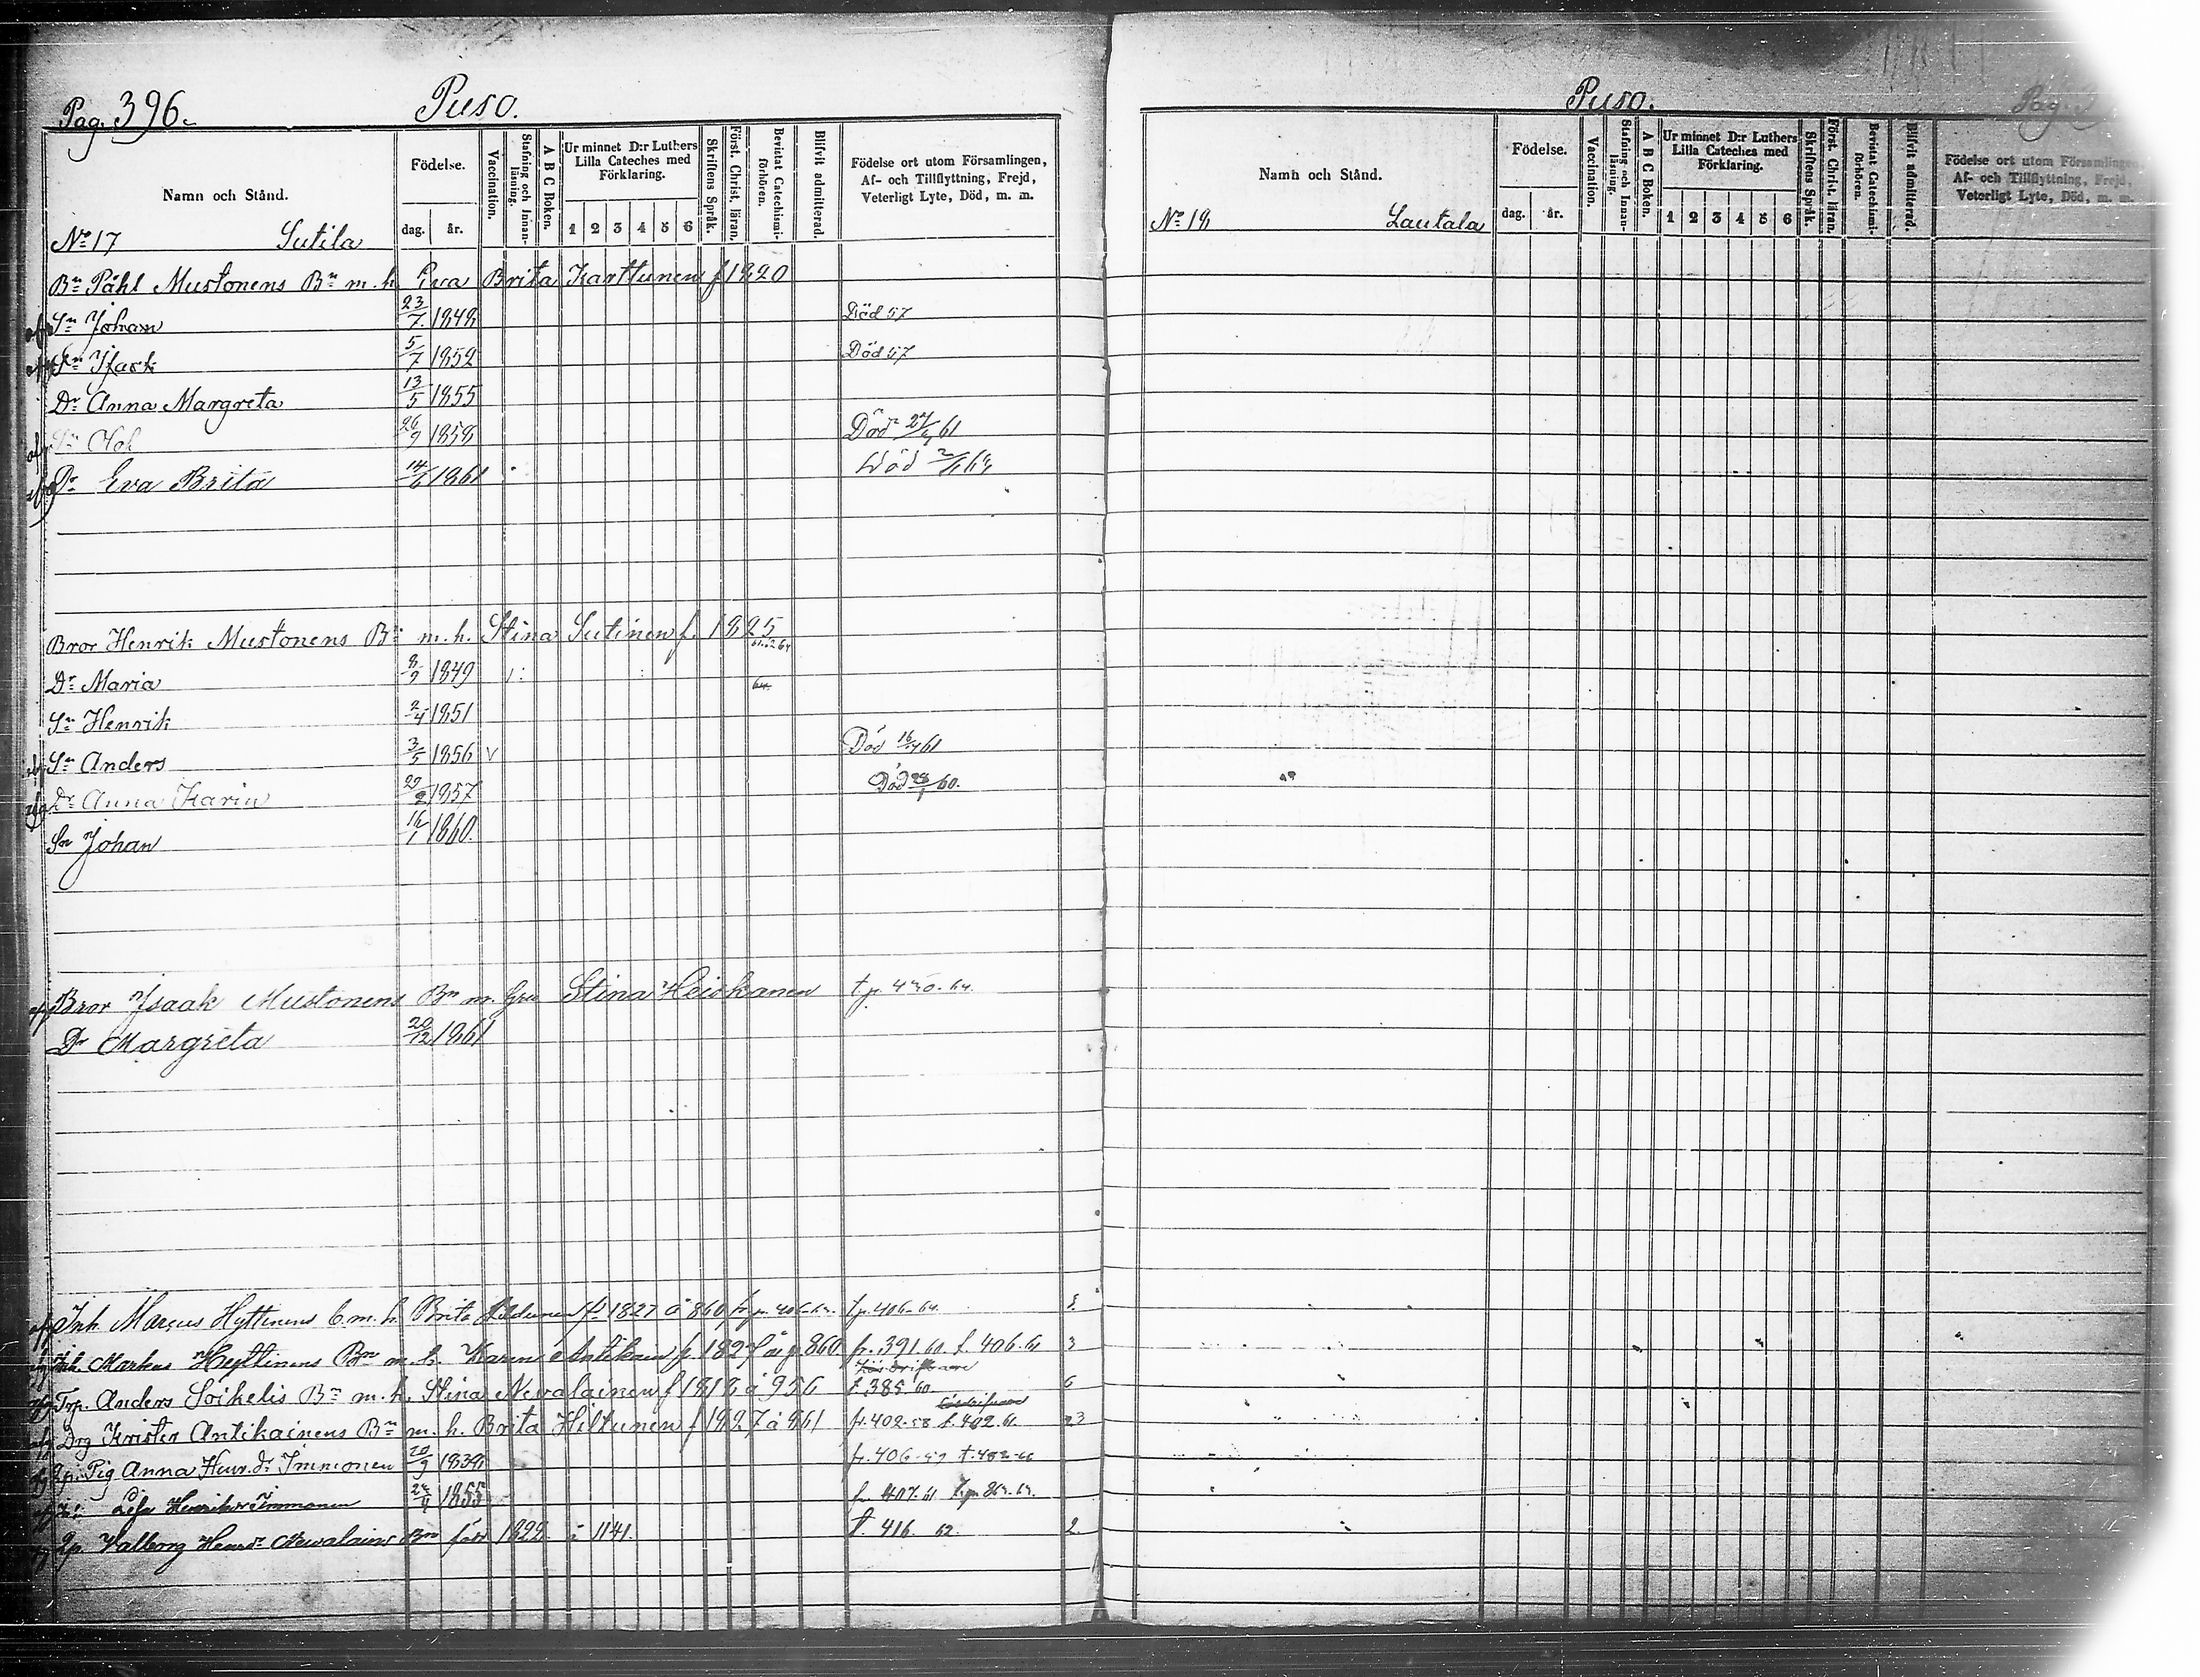 Pag. 396.
Puso.
Namn och Stånd.
Födelse.
dag. år.
Vaccination.
Stafning och Innanläsning.
A B C Boken.
Ur minnet D:r Luthers Lilla Cateches med Förklaring.
1 2 3 4 5 6
Skriftens Språk.
Först. Christ. läran.
Bevistat Catechismiförhören.
Blifvit admitterad.
Födelse ort utom Församlingen, Af- och Tillflyttning, Frejd, Veterligt Lyte, Död, m. m.
No 17 Sutila
Bn Påhl Mustonens Bn m. h. Eva Brita Karttunen f 1820
Sn Johan 23/7 1848 Död 57
Sn Isack 5/7 1852 Död 57
Dr Anna Margreta 13/5 1855
Sn Olof 26/9 1858 Död 61
Dr Eva Brita 14/6 1861 Död
Bror Henrik Mustonens Bn m. h. Stina Sutinen f. 1825
Dr Maria 1849
Sn Henrik 2/4 1851
Sn Anders 3/5 1856 v Död 16/4 61
Dr Anna Karin 1857 Död 60.
Sn Johan 16/1 1860.
Bror Isaak Mustonens Bn m. Stina Heiskanen t. p. 64.
Dr Margreta 20/12 1861
Inh. Marcus Hyttinens m. h. Brita f 1827 å 860 fr. p. 406 t. p. 406-64.
Inh. Markus Hyttinens Bn m. h. Karin Antikain f. 1827 å p. 860 fr. 391. 60. t. 406. 61 3
Trp. Anders Soikelis Bn m. h. Stina Nevalainen f 1818 å 956 t. 385 60. 6
Drg Krister Antikainens Bn m. h. Brita Hiltunen f 1827 å 861 fr. 402-58 t. 402. 61 23
Pig Anna Henr. dr Immonen 20/9 1838 fr. 406-
Lisa Henriksdr Immonen 1855 fr. 407. 61
Valborg Henrdr Nevalains Bn född 1822 å 1141. t. 416. 62. 2
Puso.
Pag.
Namn och Stånd.
Födelse.
dag. år.
Vaccination.
Stafning och Innanläsning.
A B C Boken.
Ur minnet D:r Luthers Lilla Cateches med Förklaring.
1 2 3 4 5 6
Skriftens Språk.
Först. Christ. läran.
Bevistat Catechismiförhören.
Blifvit admitterad.
Födelse ort utom Församlingen, Af- och Tillflyttning, Frejd, Veterligt Lyte, Död, m. m.
No 18 Lautala